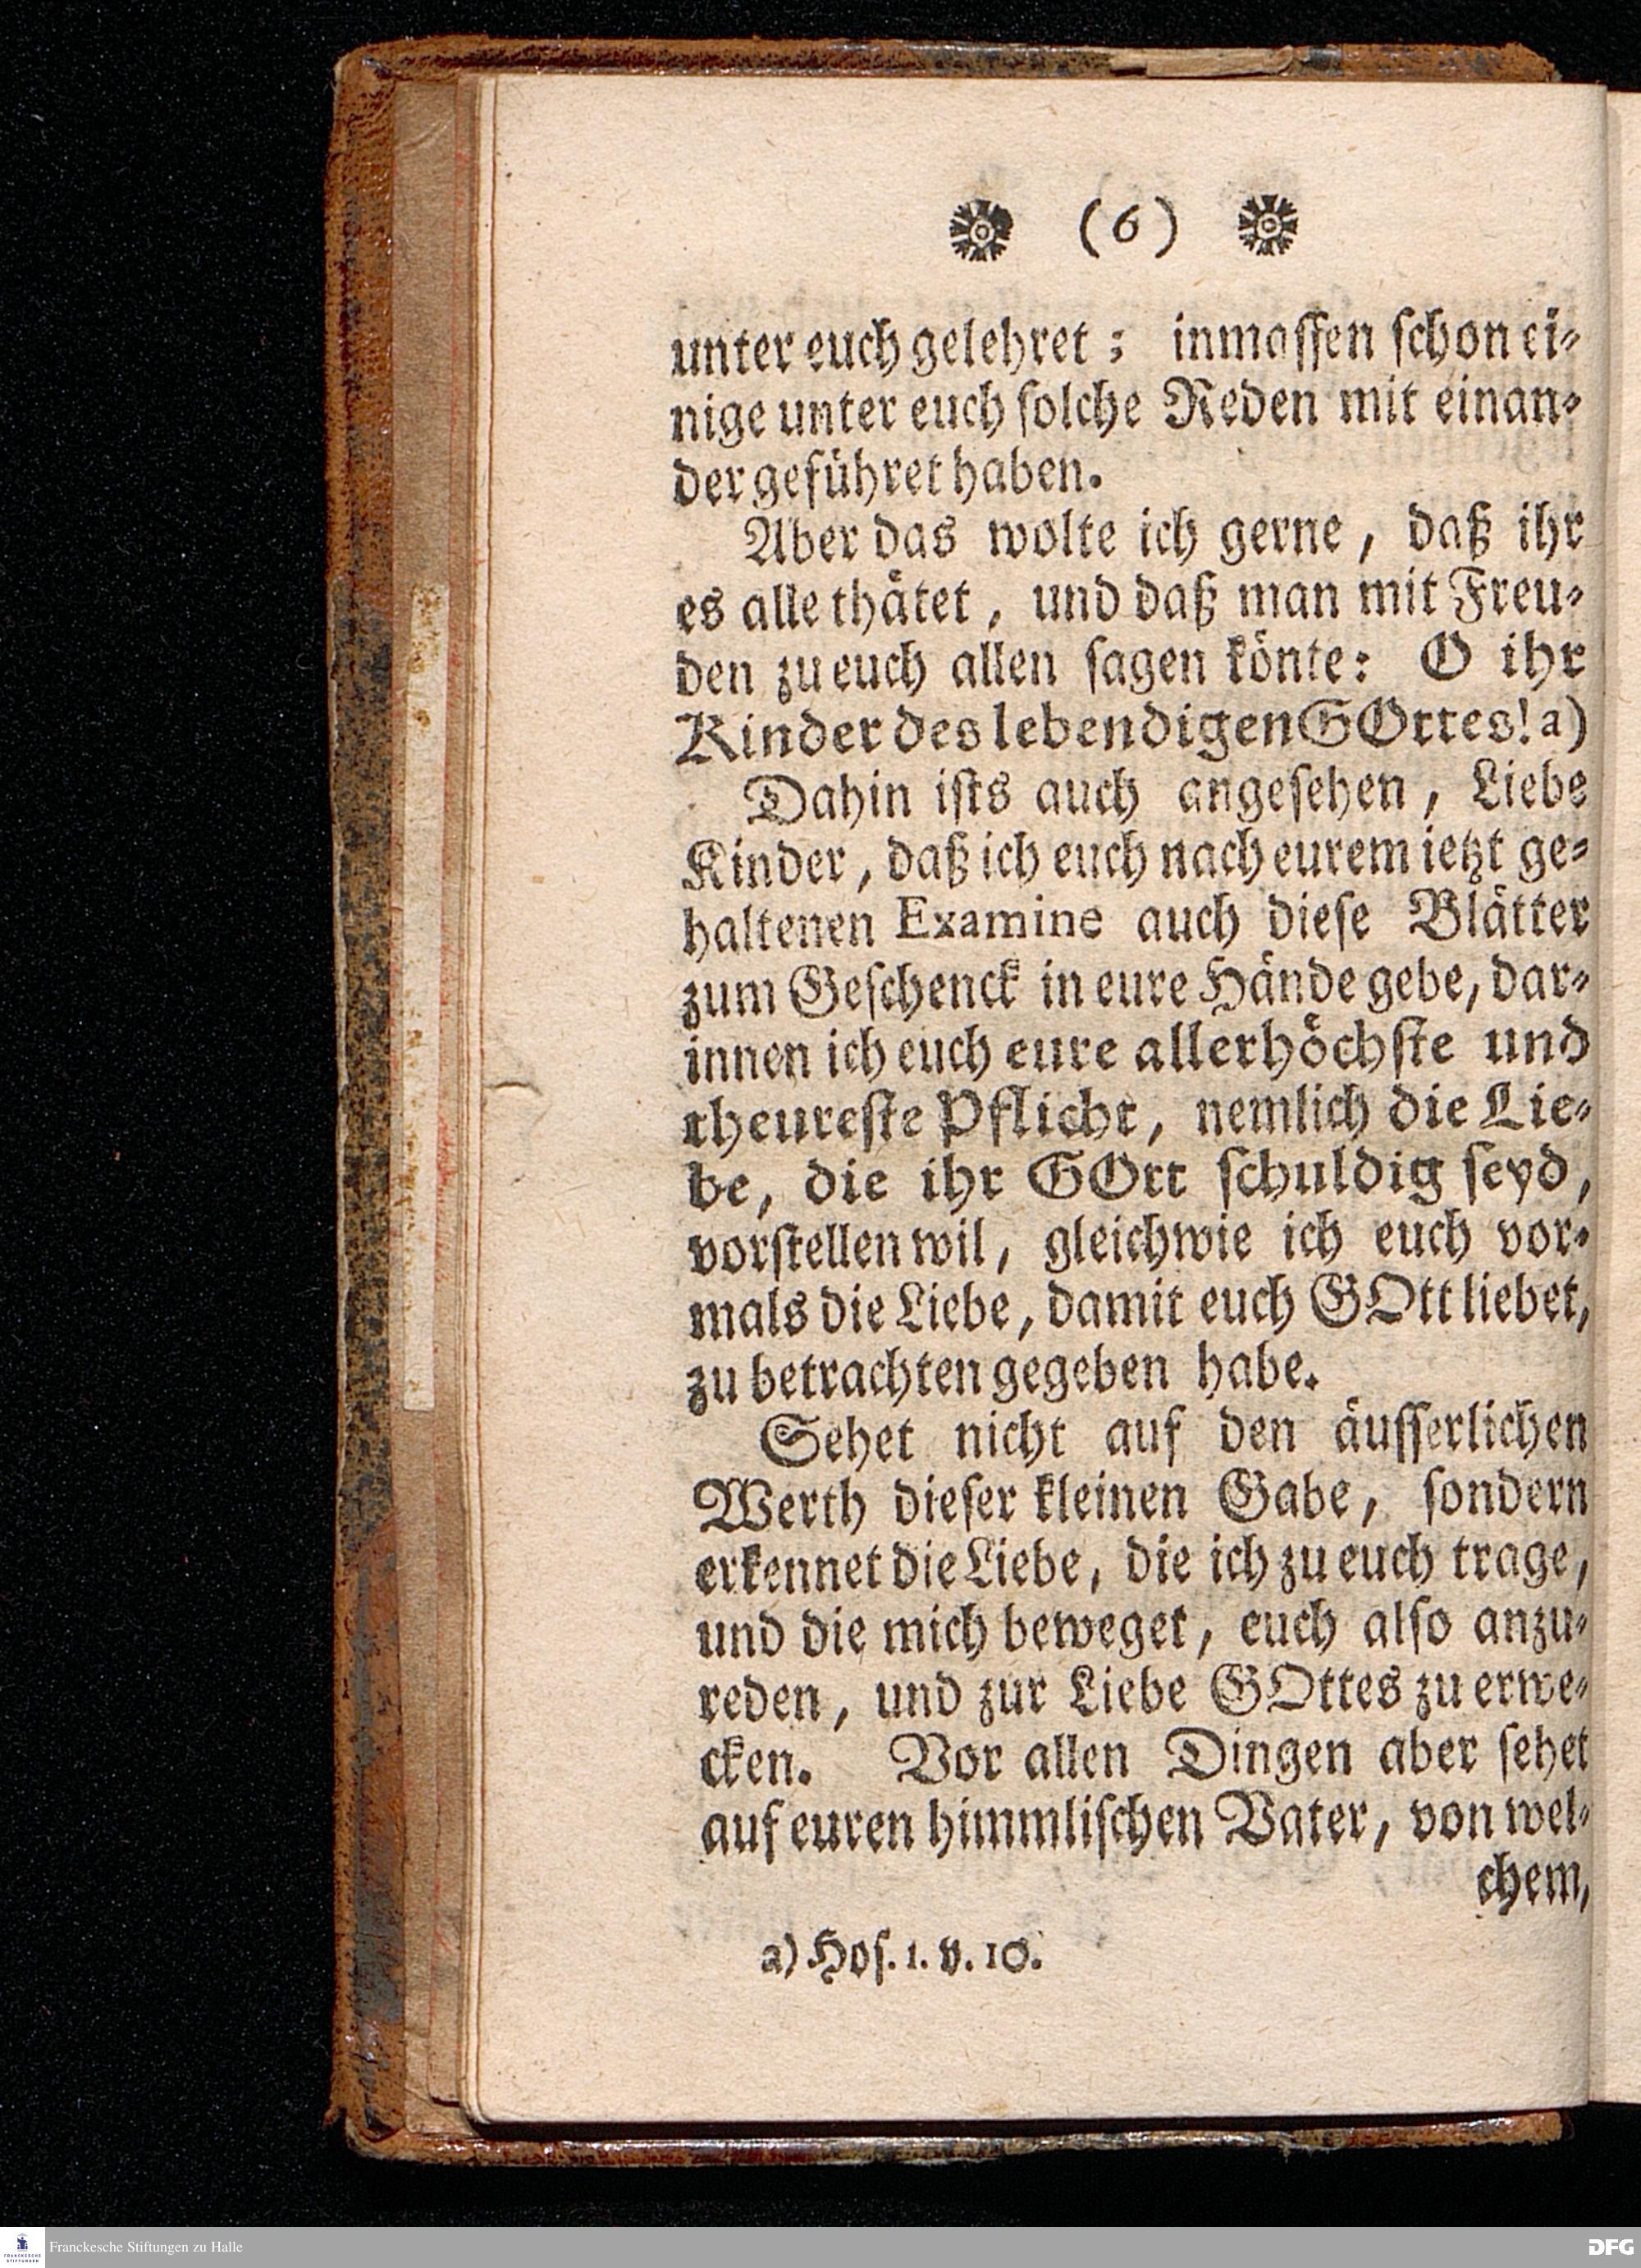 (6)
unter euch gelehret: inmaſſen ſchon ei-
nige unter euch ſolche Reden mit einan-
der geführet haben.
Aber das wolte ich gerne, daß ihr
es alle thätet, und daß man mit Freu-
den zu euch allen ſagen könte: O ihr
Kinder des lebendigen GOttes! a)
Dahin iſts auch angeſehen, Liebe
Kinder, daß ich euch nach eurem ietzt ge-
haltenen Examine auch dieſe Blätter
zum Geſchenck in eure Hände gebe, dar-
innen ich euch eure allerhöchſte und
theureſte Pflicht, nemlich die Lie-
be, die ihr GOtt ſchuldig ſeyd,
vorſtellen wil, gleichwie ich euch vor-
mals die Liebe, damit euch GOtt liebet,
zu betrachten gegeben habe.
Sehet nicht auf den äuſſerlichen
Werth dieſer kleinen Gabe, ſondern
erkennet die Liebe, die ich zu euch trage,
und die mich beweget, euch alſo anzu-
reden, und zur Liebe GOttes zu erwe-
cken. Vor allen Dingen aber ſehet
auf euren himmliſchen Vater, von wel-
chem,
a) Hoſ. 1. v. 10.
FRANCKESCHE
STIFTUNGEN
Franckesche Stiftungen zu Halle
DFG